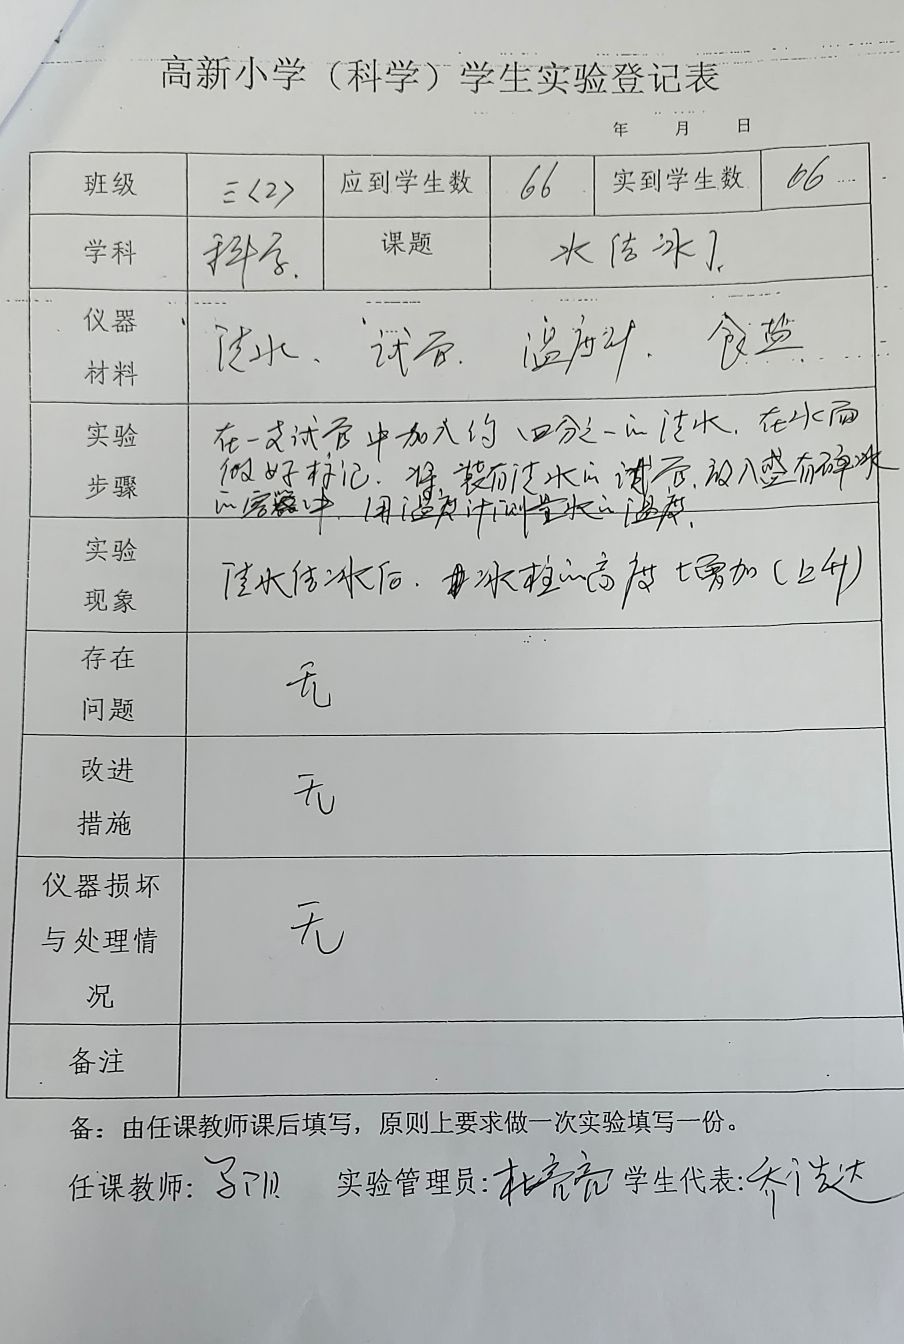 高新小学（科学）学生实验登记表
年 月 日
班级 三〈2〉 应到学生数 66 实到学生数 66
学科 科学. 课题 水结冰了.
仪器
材料
清水、 试管. 温度计. 食盐
实验
步骤
在一支试管中加入约四分之一的清水. 在水面
做好标记. 将装有清水的试管.放入盛有碎冰
的容器中. 用温度计测量水的温度.
实验
现象
清水结冰后. 冰柱的高度增加(上升)
存在
问题
无
改进
措施
无
仪器损坏
与处理情
况
无
备注
备：由任课教师课后填写，原则上要求做一次实验填写一份。
任课教师: 实验管理员: 杜亮亮 学生代表: 乔浩达